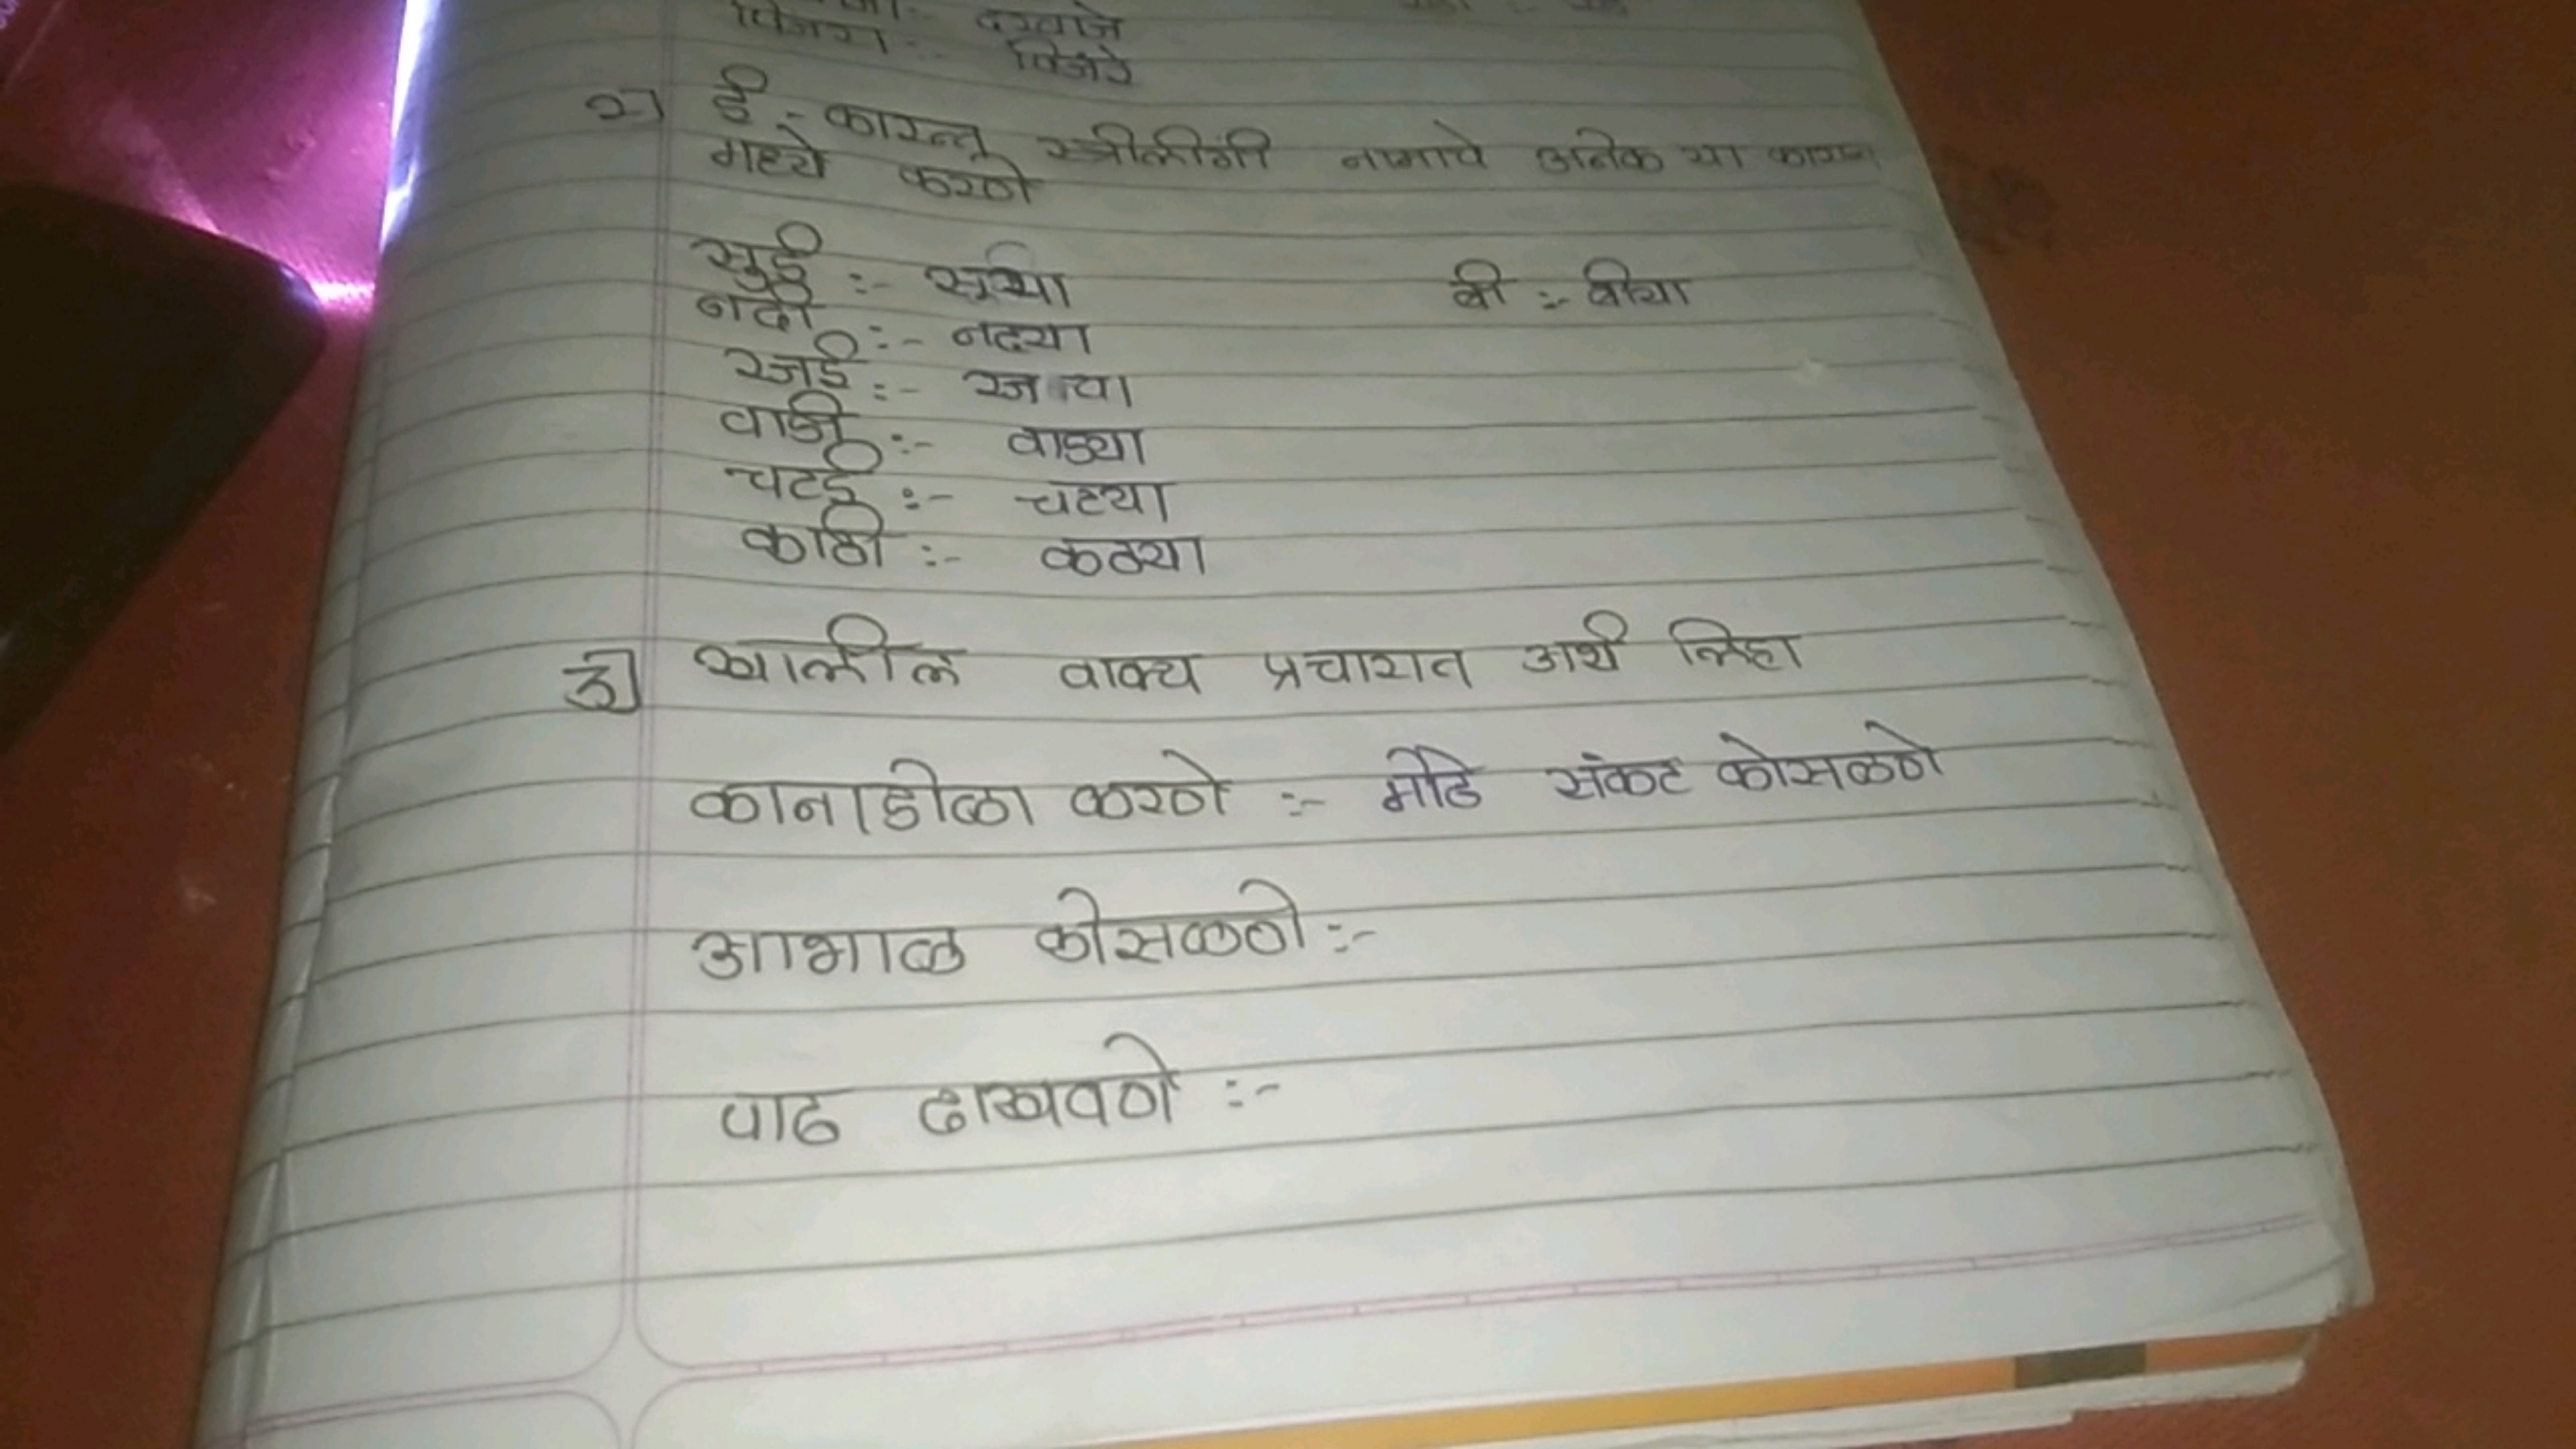 दरवाजे
पिंजरा :- पिंजरे
२) ई - कारन्त स्त्रीलींगी नामाचे अनेक या कारान्त
मध्ये करणे
सुई :- सूया बी :- बीया
नदी :- नदया
रजई :- रजया
वाडी :- वाड्या
चटई :- चटया
काठी :- कठया
३) खालील वाक्य प्रचारात अर्थ लिहा
कानाडोळा करणे :- मोठे संकट कोसळणे
आभाळ कोसळणे :-
पाठ दाखवणे :-